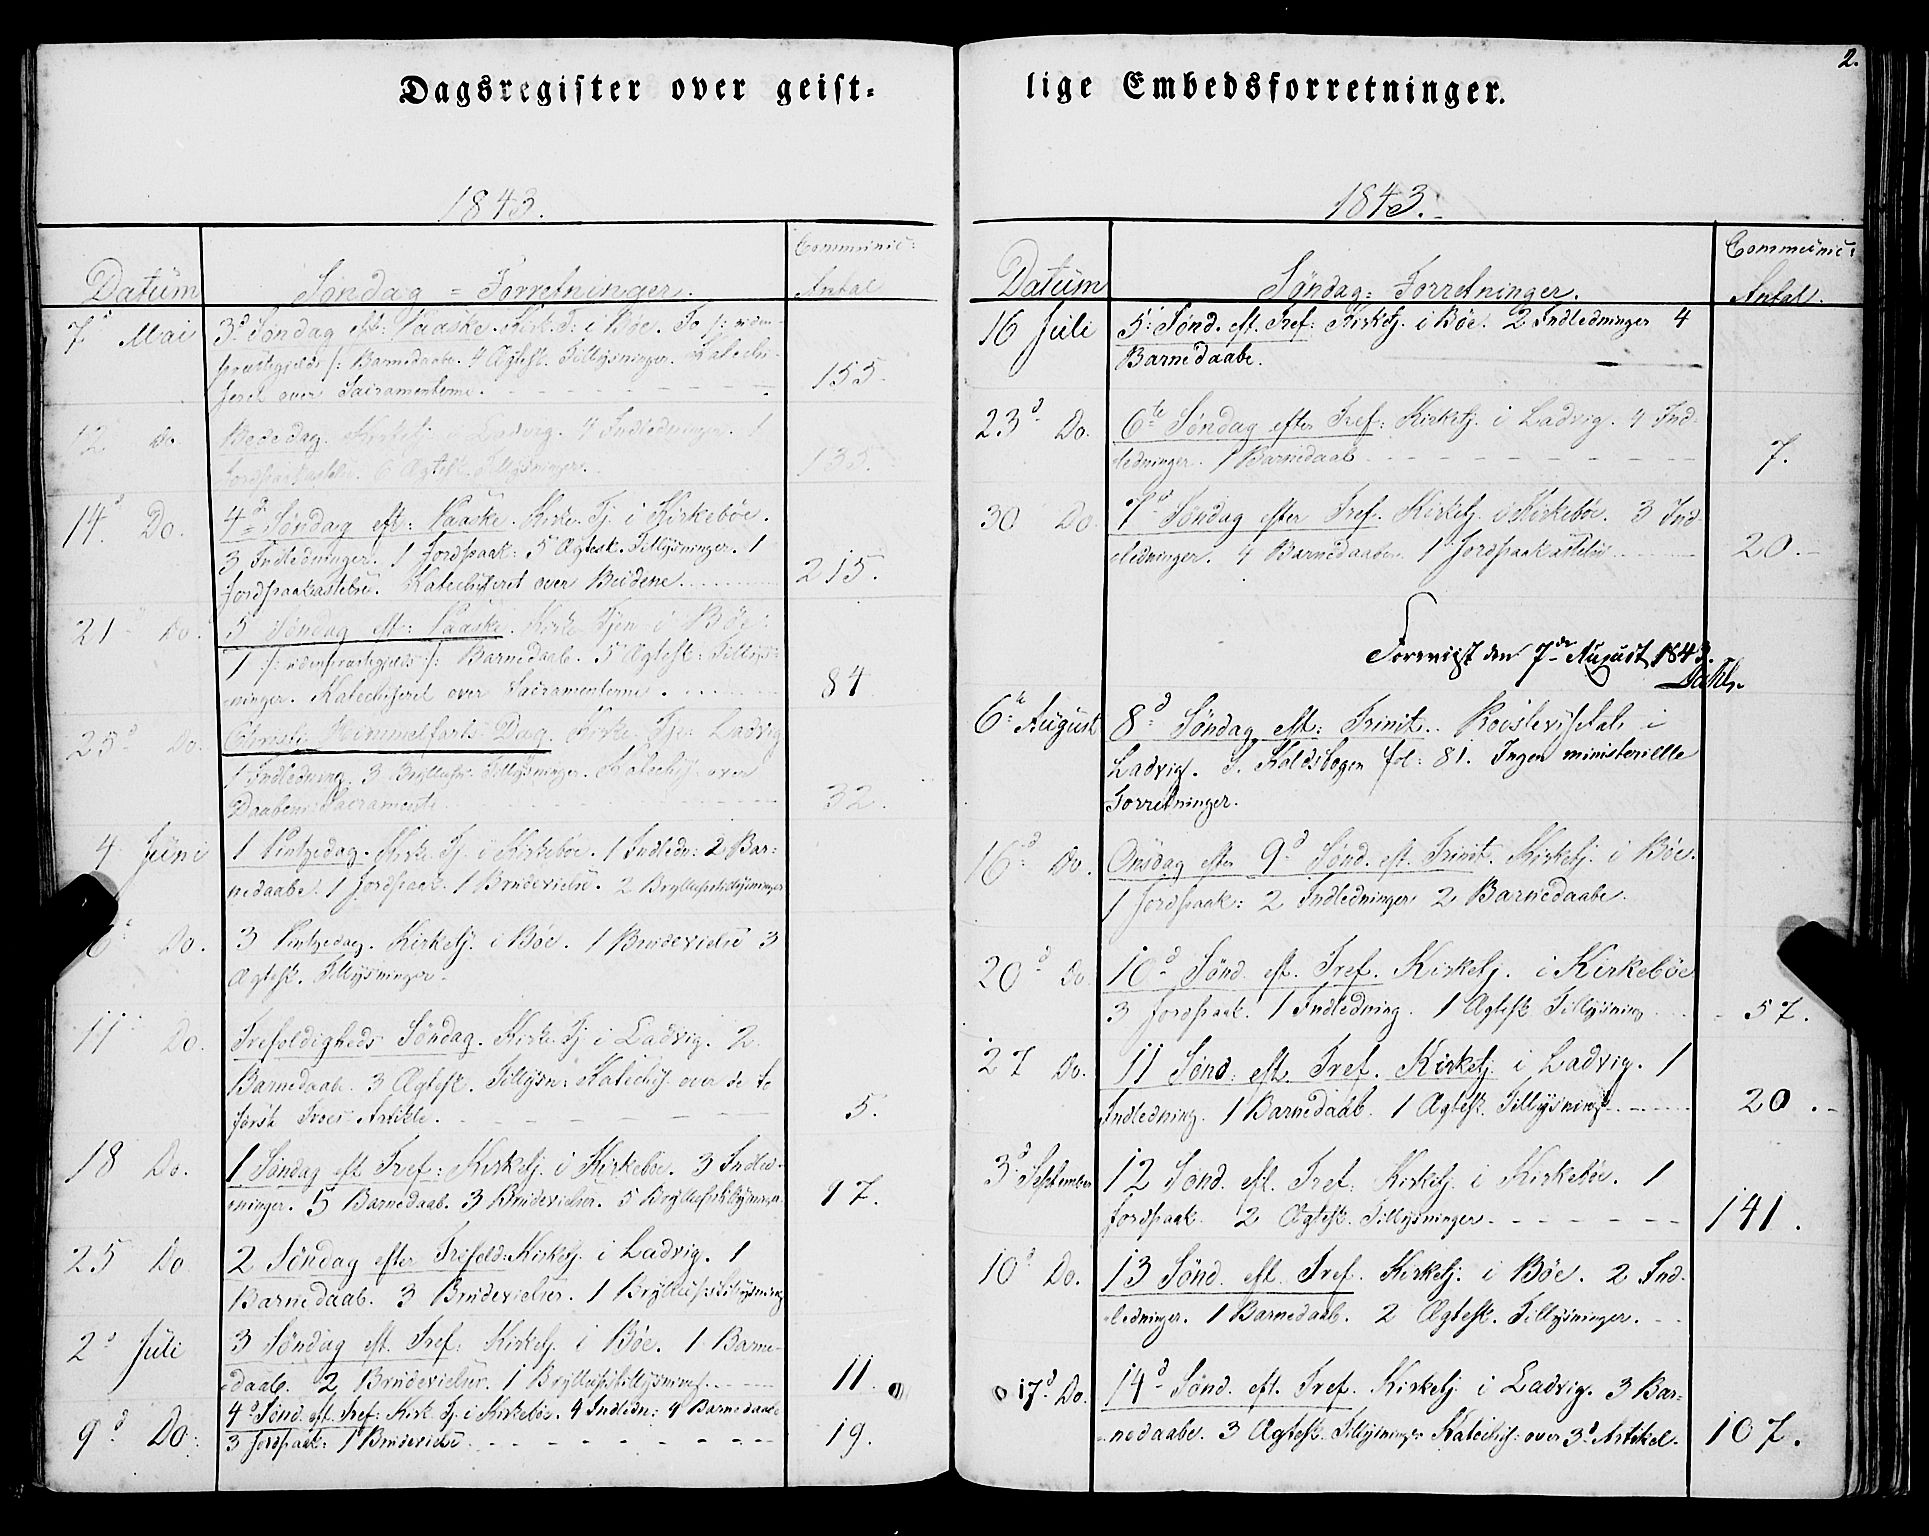 2.
Dagsregister over geist-
1843.
Datum
Søndag = Forretninger.
Communic:
Antal
7d Mai 3d Søndag eft: Paaske. Kirk. Tj: i Bøe. To /: uden-
præstegjelds /: Barnedaabe. 4 Ægtesk. Tillysninger. Katechi-
seret over Sacramenterne. 155.
12 Do. Bededag. Kirketj. i Ladvig. 4 Indledninger. 1
Jordpaakastelse. 6 Ægtesk. Tillysninger. 135.
14d Do. 4d Søndag eft: Paaske. Kirke. Tj. i Kirkebøe.
3 Indledninger. 1 Jordpaak: 5 Ægtesk. Tillysninger. 1
Jordpaakastelse. Katechiseret over Budene. 215.
21 Do. 5 Søndag eft: Paaske. Kirke Tjen i Bøe:
1 /: udenpræstegjelds /: Barnedaab. 5 Ægtesk: Tillys-
ninger. Katechiseret over Sacramenterne. 84
25d Do. Christi Himmelfarts Dag. Kirke Tje: Ladvig
1 Indledning. 3 Bryllups Tillysninger. Katechis. over
Daabens Sacramente. 32.
4 Juni 1 Pintsedag. Kirke. Tj. i Kirkebøe. 1 Indledn: 2 Bar-
nedaabe. 1 Jordpaak. 1 Brudevielse. 2 Bryllupstillysninger
6 Do. 3 Pintsedag. Kirketj. i Bøe. 1 Brudevielse 3
Ægtesk. Tillysninger.
11 Do. Trefoldigheds Søndag. Kirke. Tj. i Ladvig. 2
Barnedaab. 3 Ægtesk. Tillysn: Katechis. over de to
først Troes Artikle. 5.
18 Do. 1 Søndag eft Tref: Kirketj. i Kirkebøe. 3 Indled-
ninger. 5 Barnedaab. 3 Brudevielser. 5 Bryllupstillysninger. 97.
25 Do 2 Søndag efter Trefold: Kirketj. i Ladvig. 1
Barnedaab. 3 Brudevielser. 1 Bryllupstillysning
2d Juli 3 Søndag eft. Tref: Kirketj. i Bøe. 1 Barne-
daab. 2 Brudevielser. 1 Bryllupstillysning. 11.
9d Do: 4d Sønd. eft. Tref: Kirk. Tj. i Kirkebøe. 4 Indledn: 4 Barnedaabe
3 Jordpaak: 1 Brudevielse. 19.
lige Embedsforretninger.
1843.
Datum
Søndag: Forretninger.
Communic:
Antal.
16 Juli 5: Sønd. eft. Tref: Kirketj. i Bøe. 2 Indledninger 4
Barnedaabe.
23d Do. 6te Søndag efter Tref: Kirketj. i Ladvig. 4 Ind-
ledninger. 1 Barnedaab 7.
30 Do. 7d Søndag efter Tref. Kirketj. i Kirkebøe. 3 Ind-
ledninger. 4 Barnedaaber 1 Jordpaakastelse 20.
Foreviist den 7de August 1843.
Dahl.
6te August 8d Søndag eft: Trinit. i
Ladvig. S. Kaldsbogen fol: 81. Ingen ministerielle
Forretninger.
16d Do. Onsdag efter 9d Sønd. eft. Trinit. Kirketj. i Bøe.
1 Jordpaak: 2 Indledninger 2 Barnedaabe.
20d Do. 10d Sønd. eft. Tref. Kirketj. i Kirkebøe
3 Jordpaak. 1 Indledning. 1 Ægtesk Tillysning 57.
27 Do. 11 Sønd: eft. Tref. Kirketj. i Ladvig. 1
Indledning. 1 Barnedaab. 1 Ægtesk. Tillysning. 20.
3d September 12 Sønd. eft. Tref: Kirketj. i Kirkebøe. 1
Jordpaak. 2 Ægtesk. Tillysninger. 141.
10d Do. 13 Sønd. eft. Tref. Kirketj. i Bøe. 2 Ind-
ledninger. 1 Barnedaab. 2 Ægtesk. Tillysninger.
17d Do. 14d Sønd. eft. Tref. Kirketj. i Ladvig. 3 Bar-
nedaabe. 3 Ægtesk. Tillysninger Katechis: over 3d Artikel. 107.